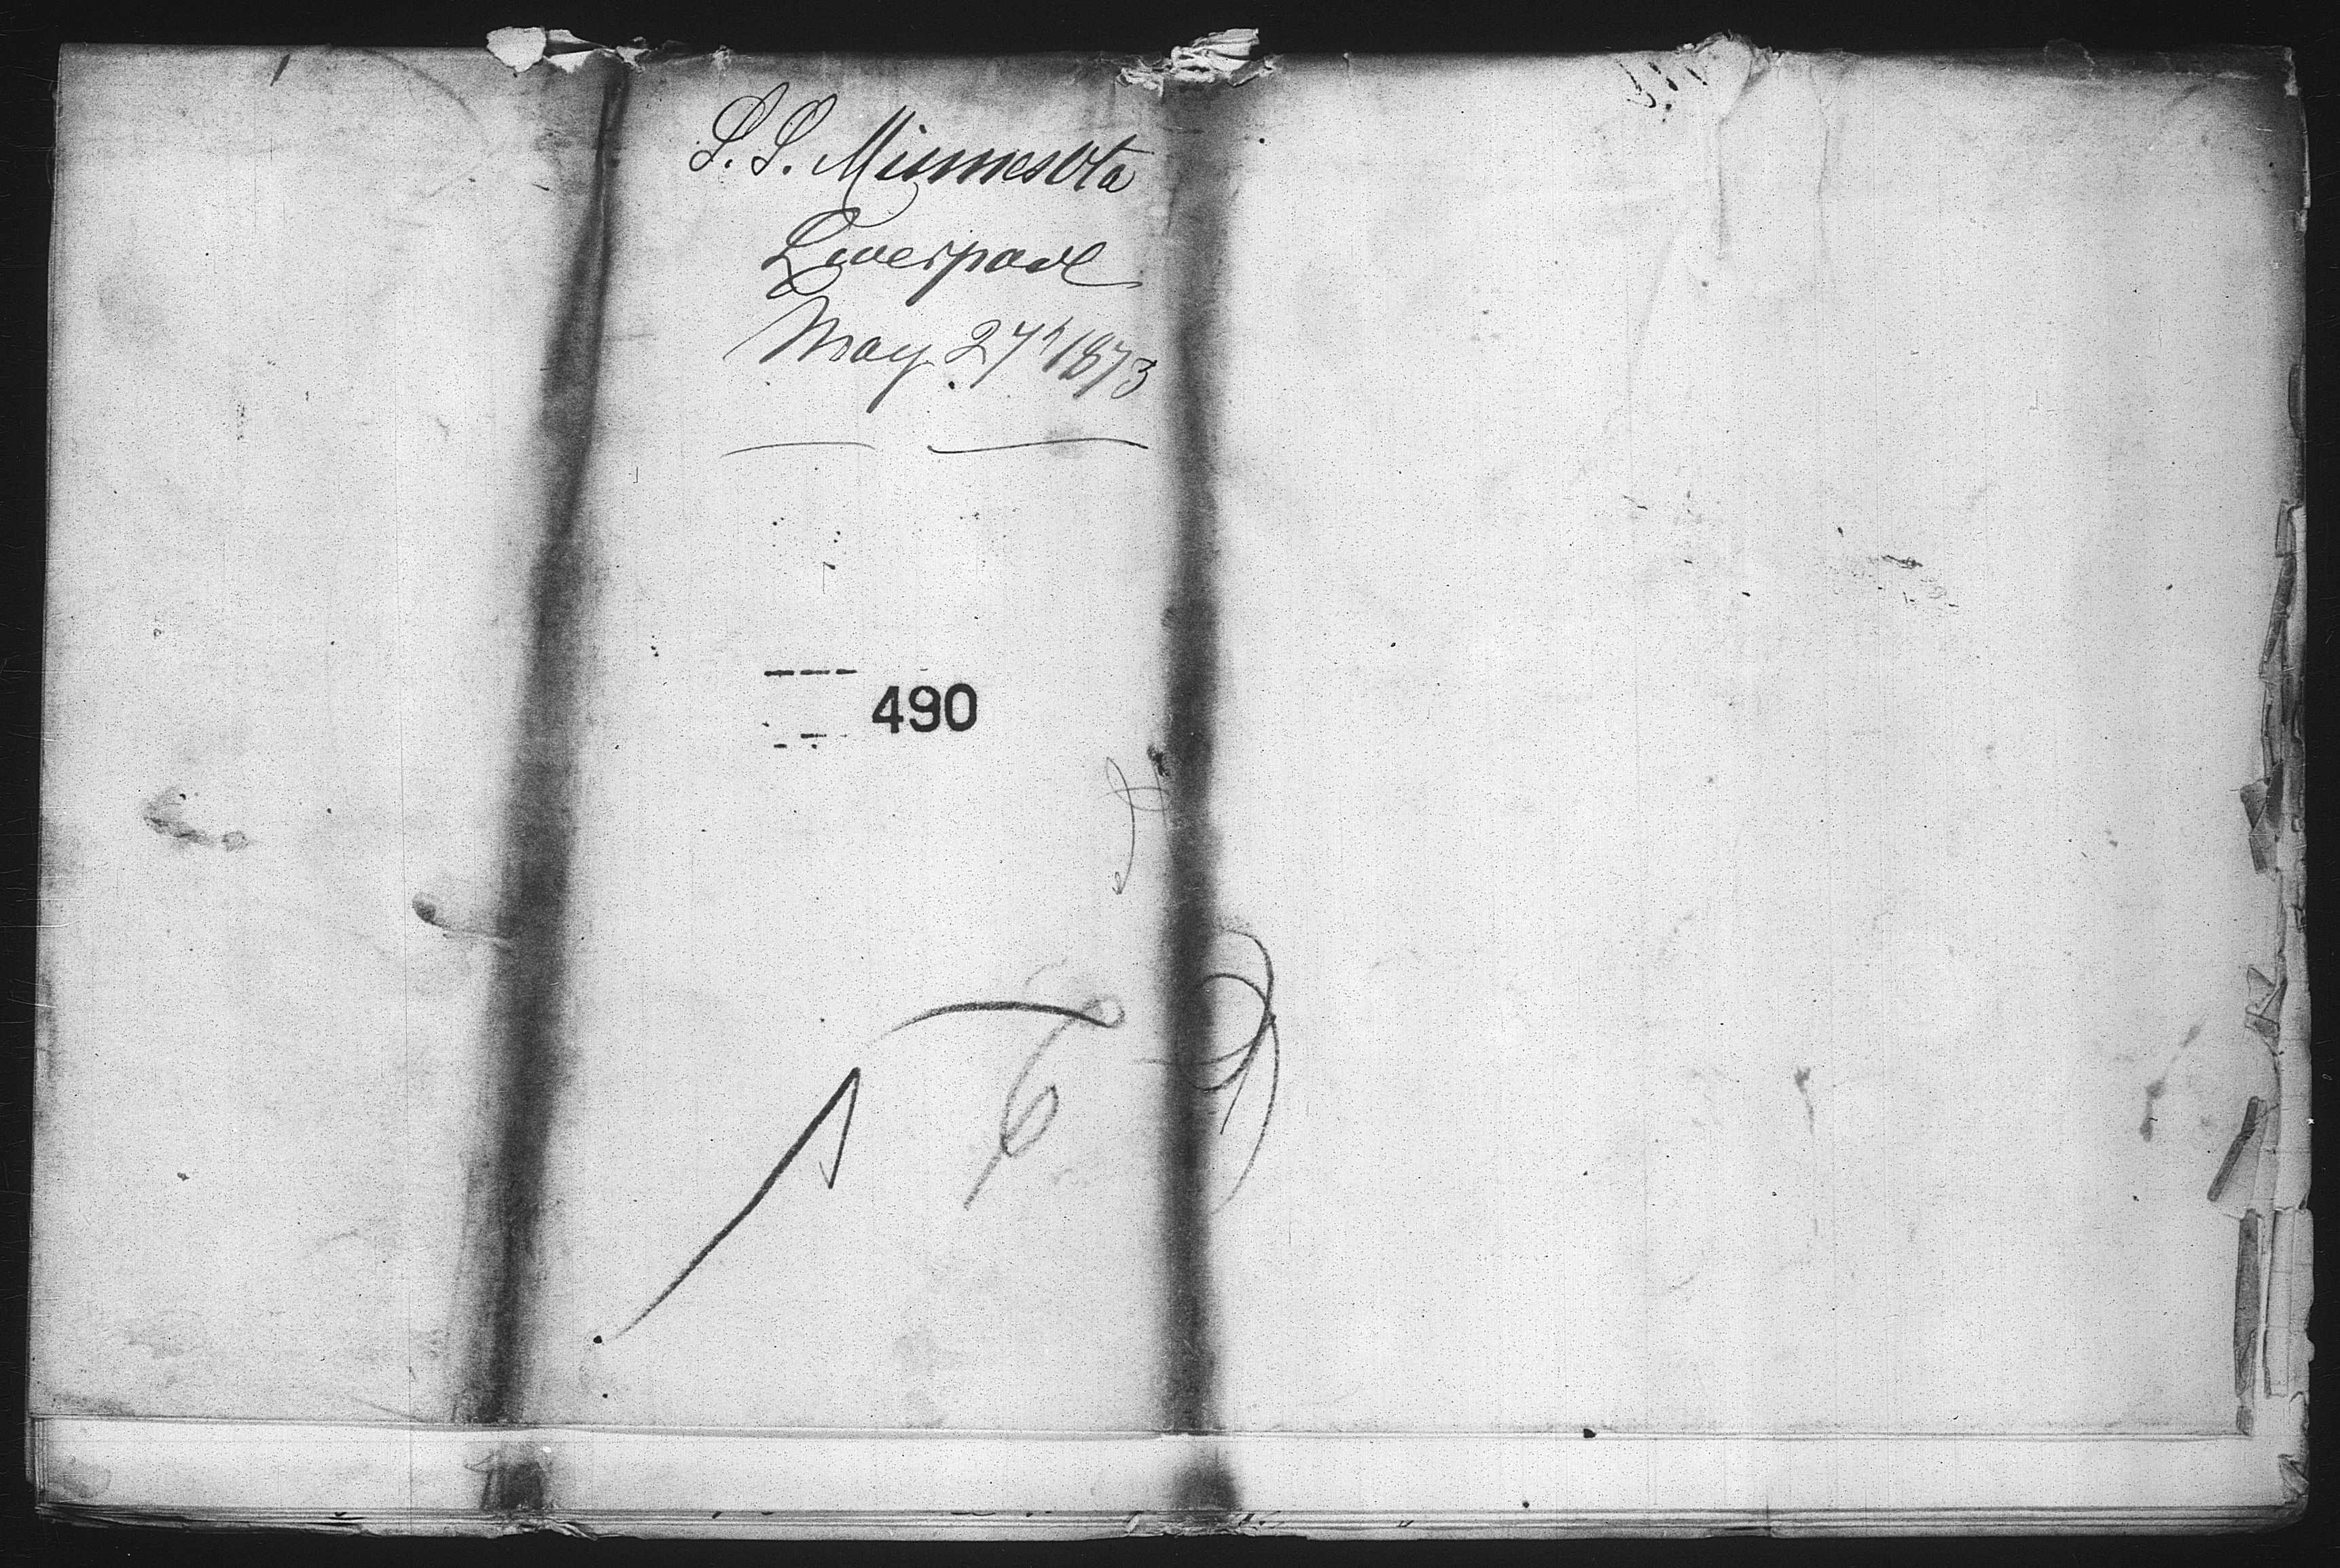 S.S. Minnesota
Liverpool
May 27" 1873
490